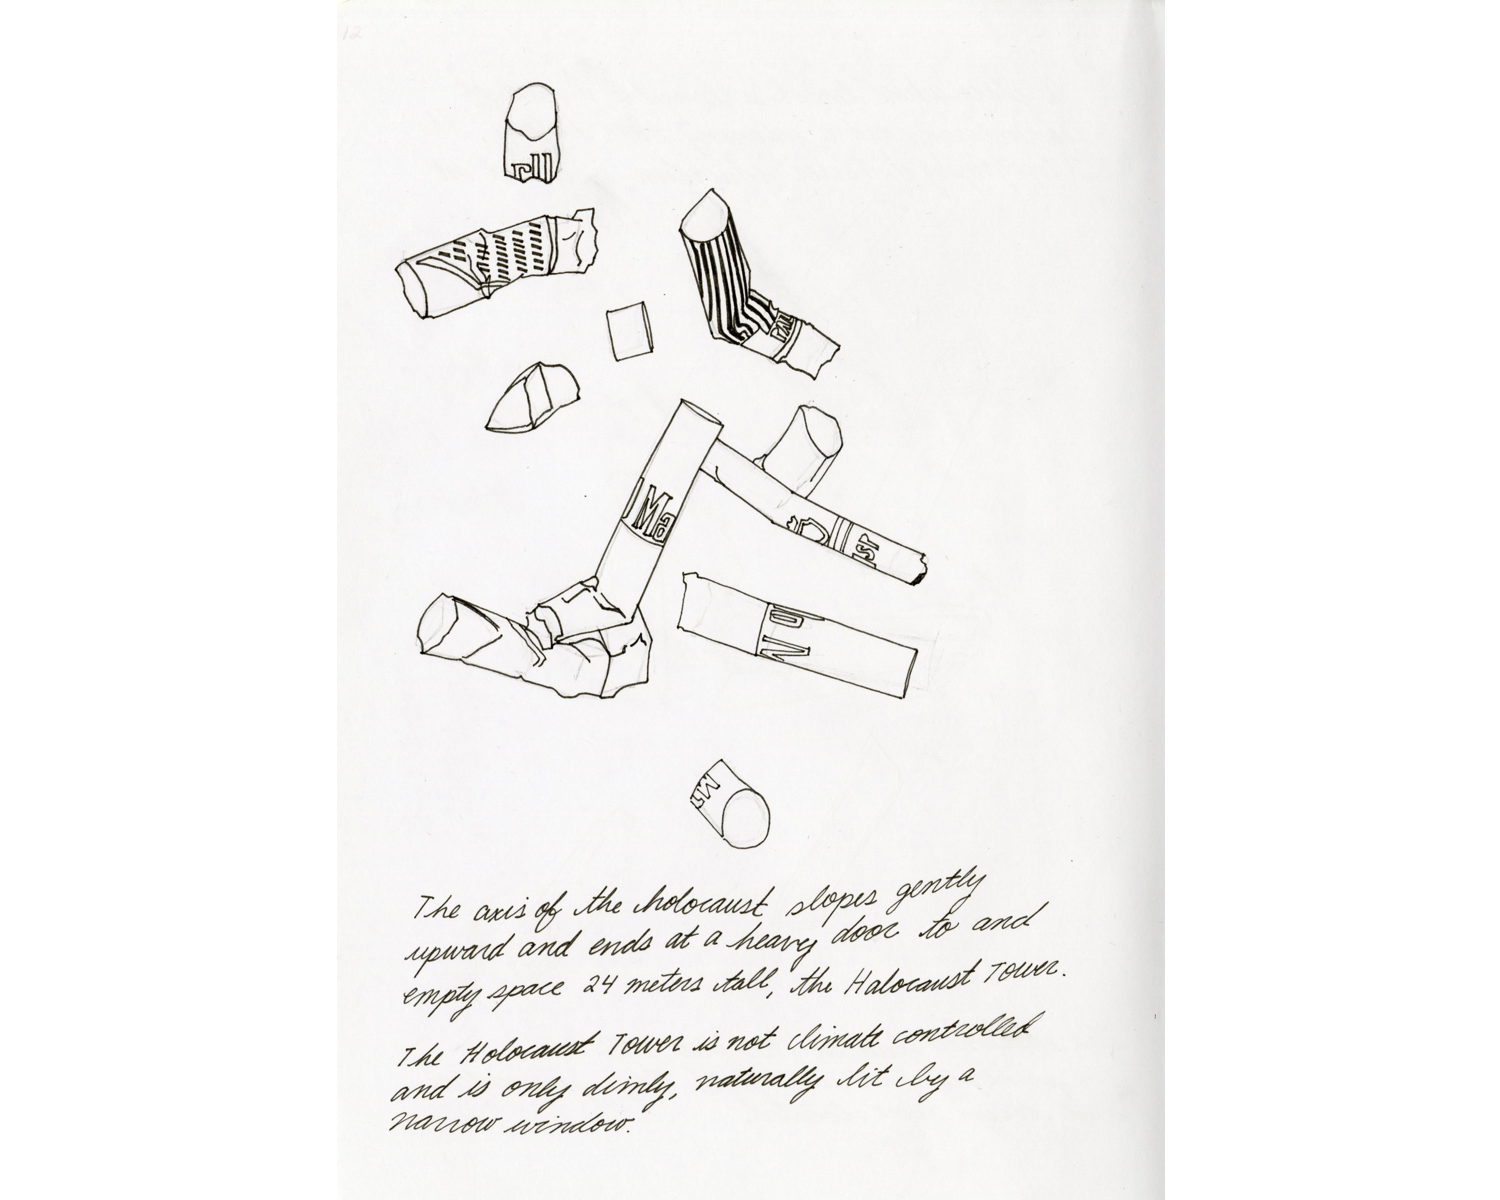 12
rll
Ma
The axis of the holocaust slopes gently
upward and ends at a heavy door to and
empty space 24 meters tall, the Halocaust Tower.
The Holocaust Tower is not climate controlled
and is only dimly, naturally lit by a
narrow window.